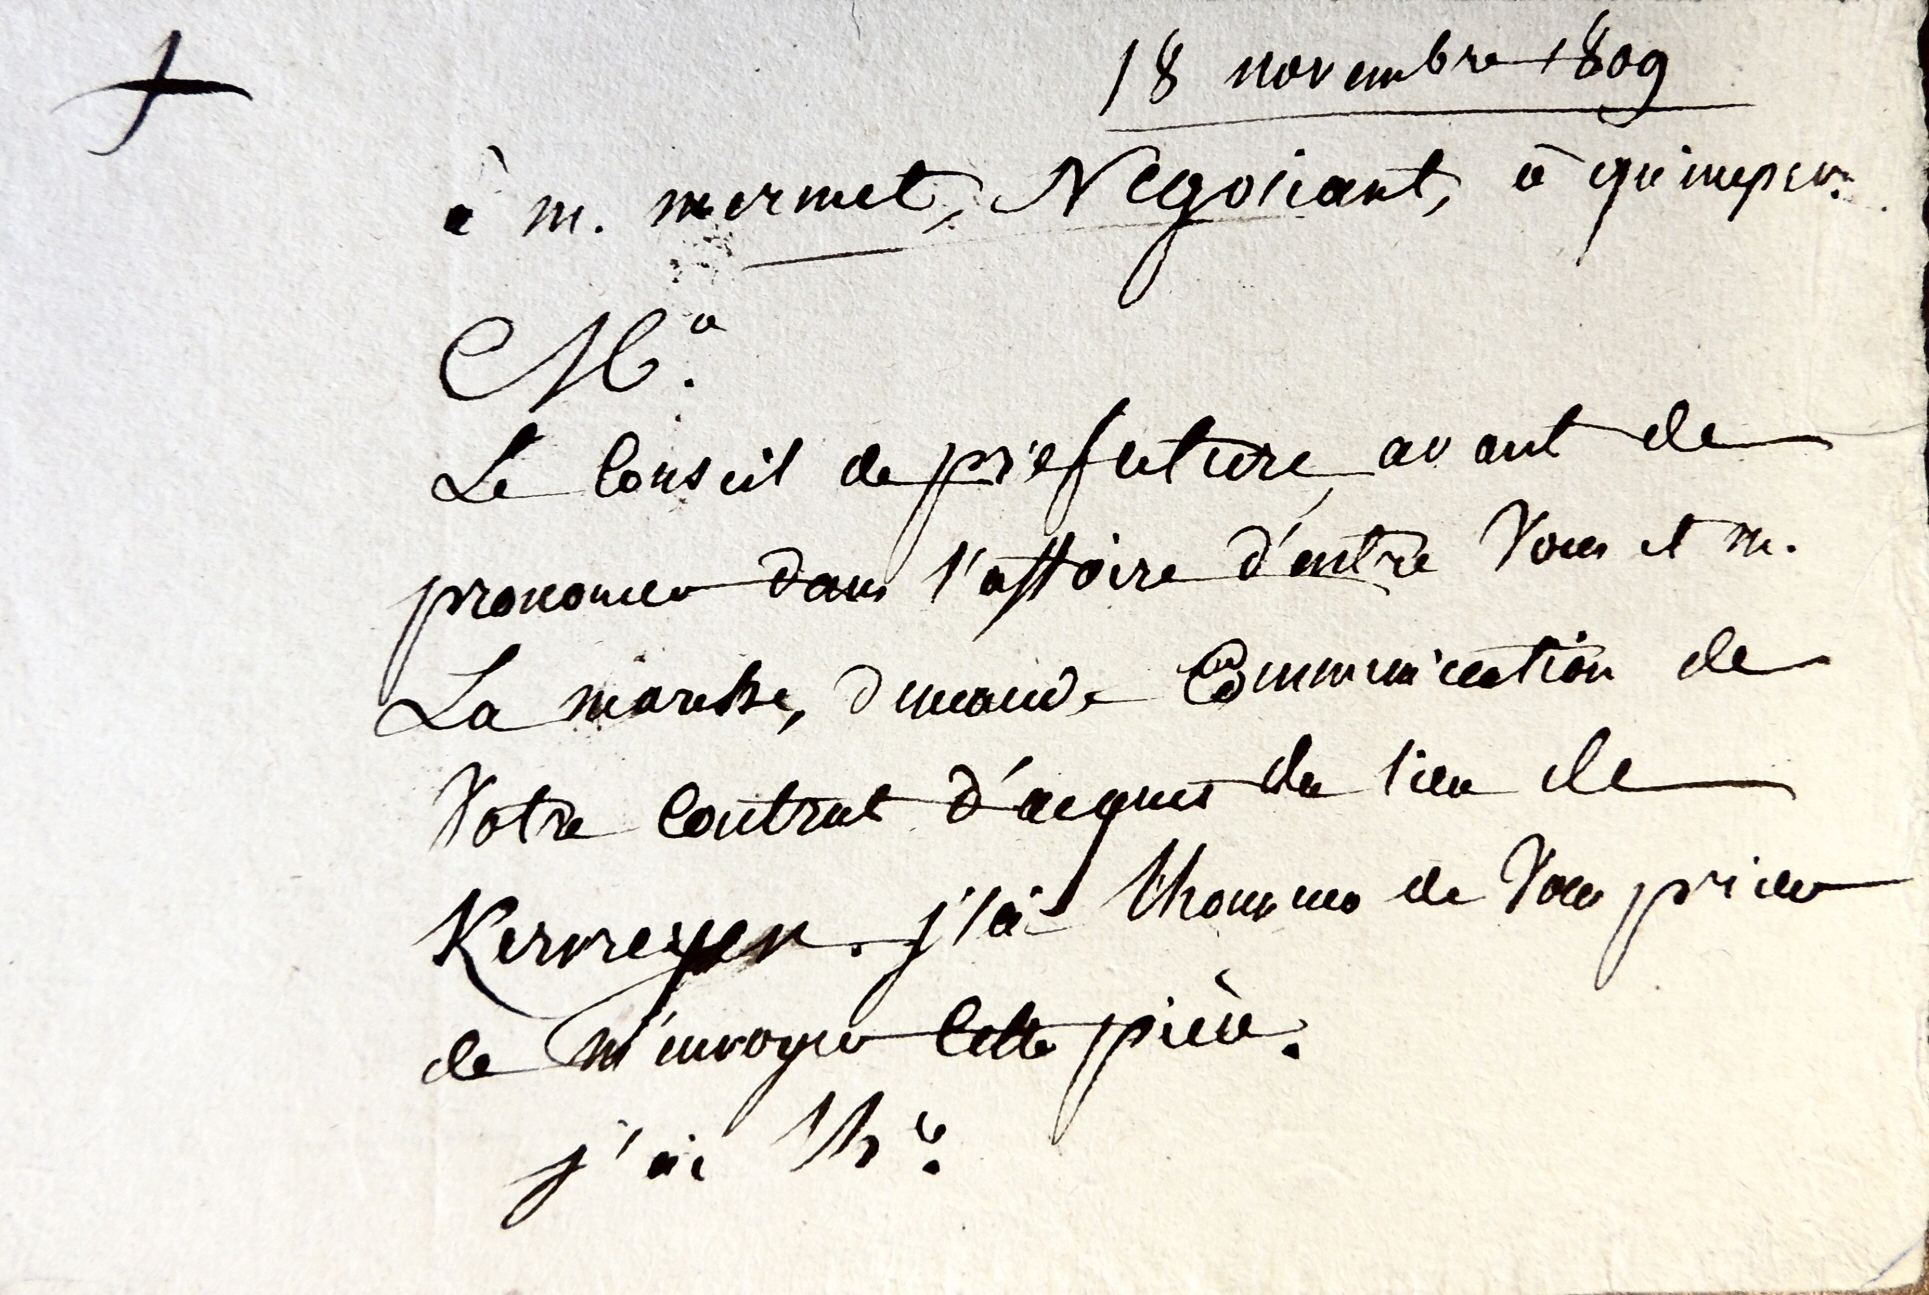 18 novembre 1809
à m. mermet, Négociant, à quimper.
M.
Le Conseil de préfecture, avant de
prononcer dans l'affaire d'entre Vous et m.
La marche, demande Communication de
Votre contrat d'acquis du lieu de
j'ai l'honneur de Vous prier
de m'envoyer Cette pièce.
j'ai l'h.